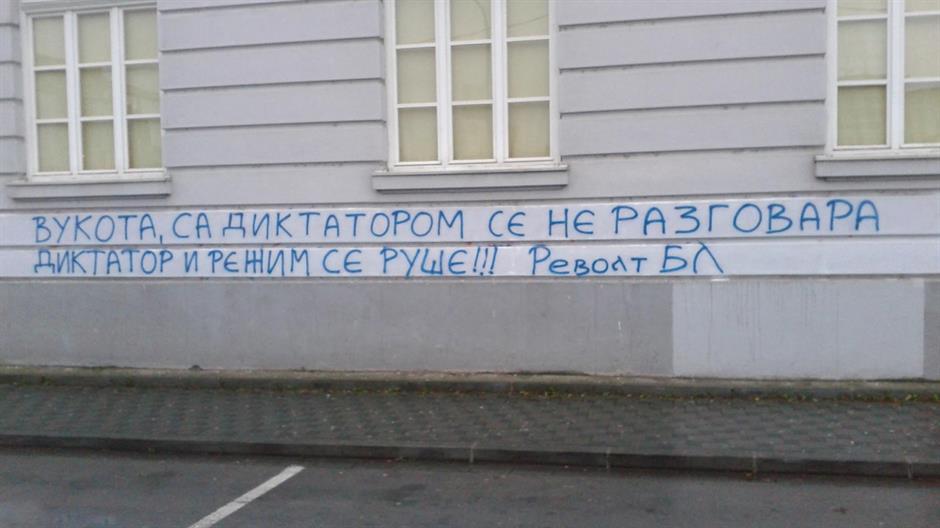 ВУКОТА, СА ДИКТАТОРОМ СЕ НЕ РАЗГОВАРА
ДИКТАТОР И РЕЖИМ СЕ РУШЕ!!! Револт БЛ